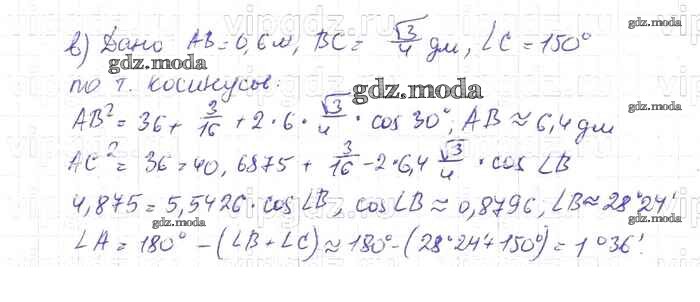 в) Дано AB = 0,6 м, BC = √3/4 дм, ∠C = 150°
gdz.moda
по т. косинусов:
gdz.moda
AB² = 36 + 3/16 + 2·6·√3/4 · cos 30°; AB ≈ 6,4 дм
gdz.moda
AC² = 36 = 40,6875 + 3/16 - 2·6,4 √3/4 · cos ∠B
4,875 = 5,5426 · cos ∠B, cos ∠B ≈ 0,8796, ∠B ≈ 28°24'
gdz.moda
gdz.moda
∠A = 180° - (∠B + ∠C) ≈ 180° - (28°24' + 150°) = 1°36'.